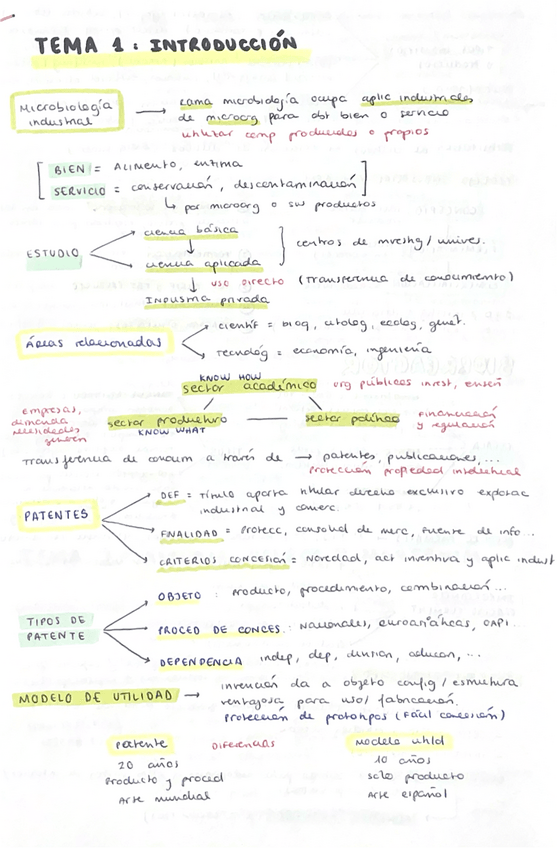 TEMA 1: INTRODUCCIÓN
Microbiología industrial → rama microbiología ocupa aplic industriales
de microorg para obt bien o servicio
utilizar comp producidos o propios
BIEN = Alimento, enzima
SERVICIO = conservación, descontaminación
↳ por microorg o sus productos
ESTUDIO
ciencia básica
↓
ciencia aplicada
centros de investig/ univers.
↓ uso directo (transferencia de conocimiento)
Industria privada
Áreas relacionadas
científ = bioq, citolog, ecolog, genét.
tecnológ = economía, ingeniería
KNOW HOW
sector académico
org públicos invest, enseñ
empresas, demanda necesidades generan
sector productivo — sector político
KNOW WHAT
Financiación y regulación
Transferencia de conocim a través de → patentes, publicaciones,...
Protección propiedad intelectual
PATENTES
DEF = Título aporta titular derecho exclusivo explotac
industrial y comerc.
FINALIDAD = Protecc, control de merc, Fuente de info...
CRITERIOS CONCESIÓN = Novedad, act inventiva y aplic indust
TIPOS DE PATENTE
OBJETO : producto, procedimiento, combinación...
PROCED DE CONCES. : Nacionales, euroasiáticas, OAPI...
DEPENDENCIA indep, dep, división, adición,...
MODELO DE UTILIDAD → invención da a objeto config/ estructura
ventajosa para uso/ fabricación.
Protección de prototipos (Fácil concesión)
Patente Diferencias Modelo utild
20 años 10 años
Producto y proced solo producto
Arte mundial Arte español